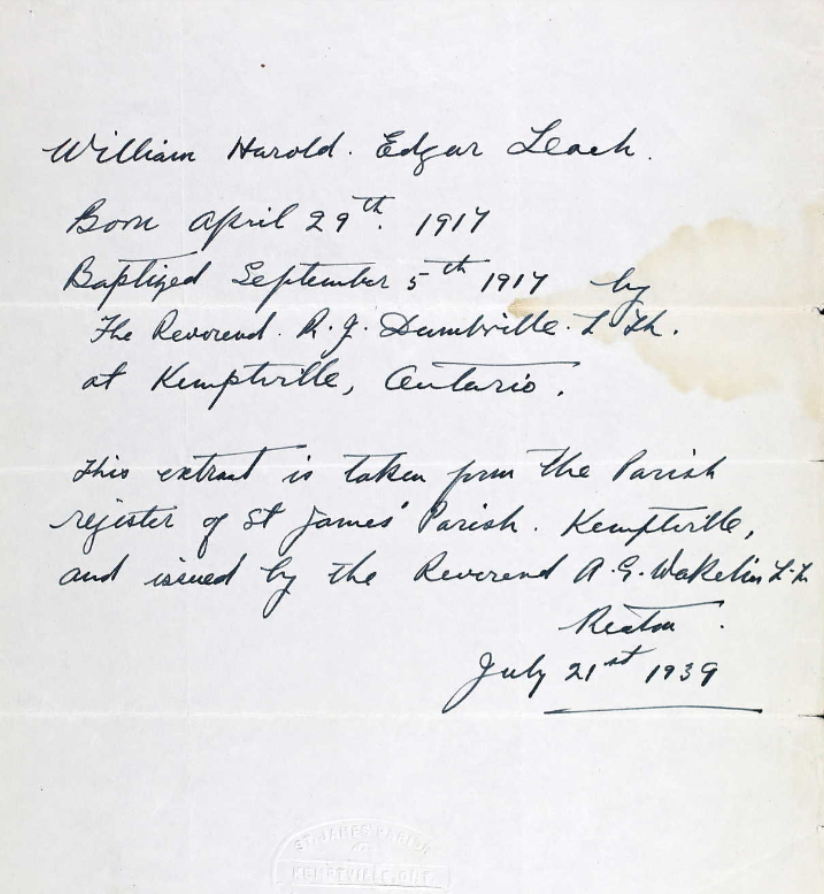 William Harold. Edgar Leach.
Born April 29th. 1917
Baptized September 5th 1917 by
The Reverend. R. J. Dumbrille. L Th.
at Kemptville, Ontario.
This extract is taken from the Parish
register of St James' Parish. Kemptville,
and issued by the Reverend A. G. Wakelin L. Th
Rector.
July 21st 1939
ST. JAMES PARISH
KEMPTVILLE, ONT.